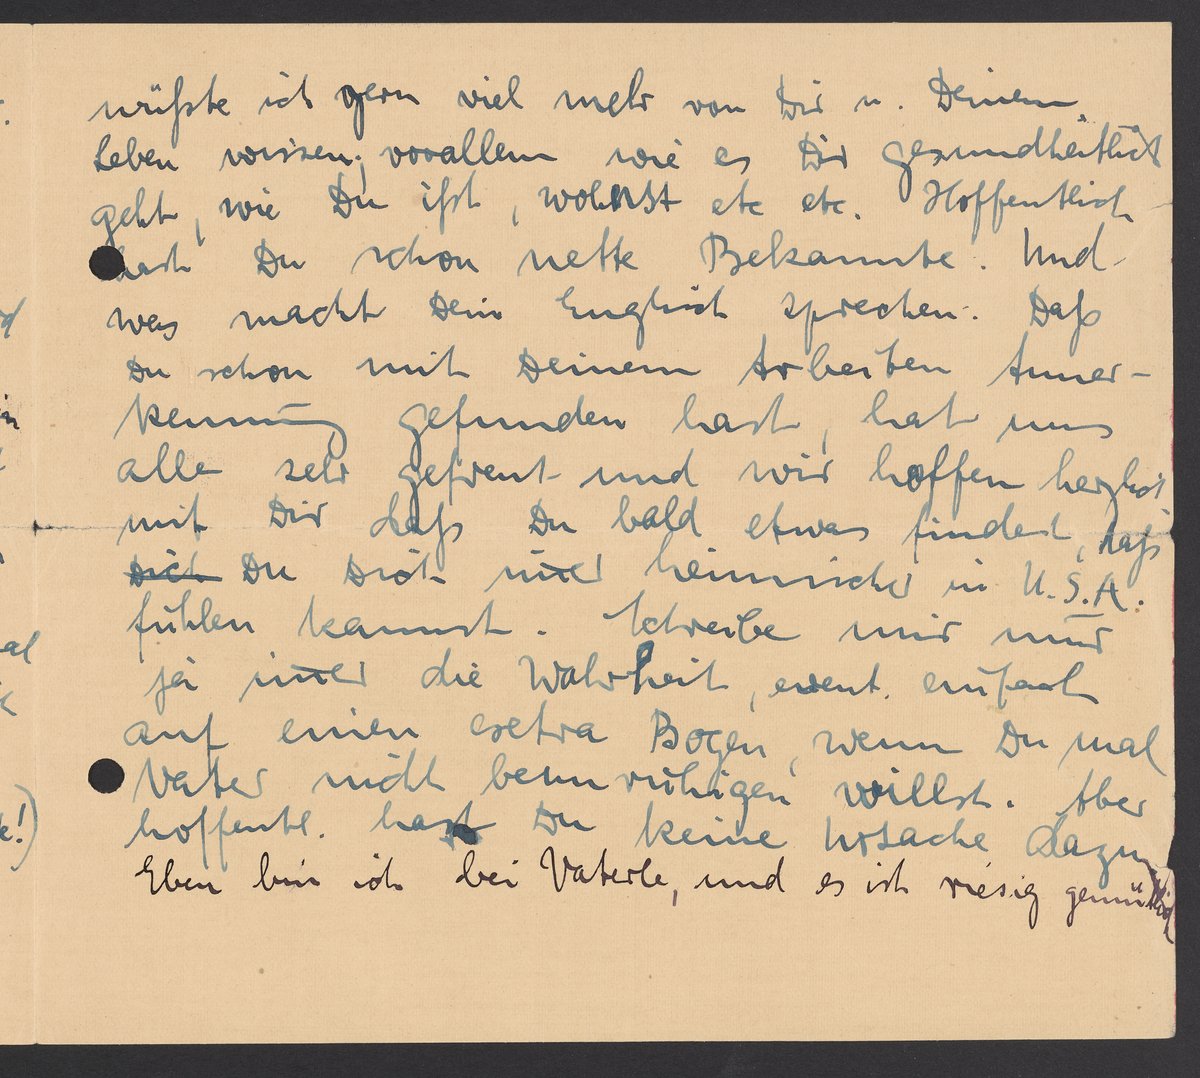 müßte ich gern viel mehr von Dir u. Deinem
Leben wissen, vorallem wie es Dir gesundheitlich
geht, wie Du ißt, wohnst etc etc. Hoffentlich
hast Du schon nette Bekannte. Und
was macht Dein Englisch sprechen. Daß
Du schon mit Deinem Arbeiten Anner-
kennung gefunden hast, hat uns
alle sehr gefreut und wir hoffen herzlich
mit Dir daß Du bald etwas findest, daß
Dich Du Dich im̅er heimischer in U.S.A.
fühlen kannst. Schreibe mir nur
ja im̅er die Wahrheit, event. einfach
auf einen extra Bogen, wenn Du mal
Vater nicht beunruhigen willst. Aber
hoffentl. hast Du keine Ursache dazu
Eben bin ich bei Vaterle, und es ist riesig gemütlich